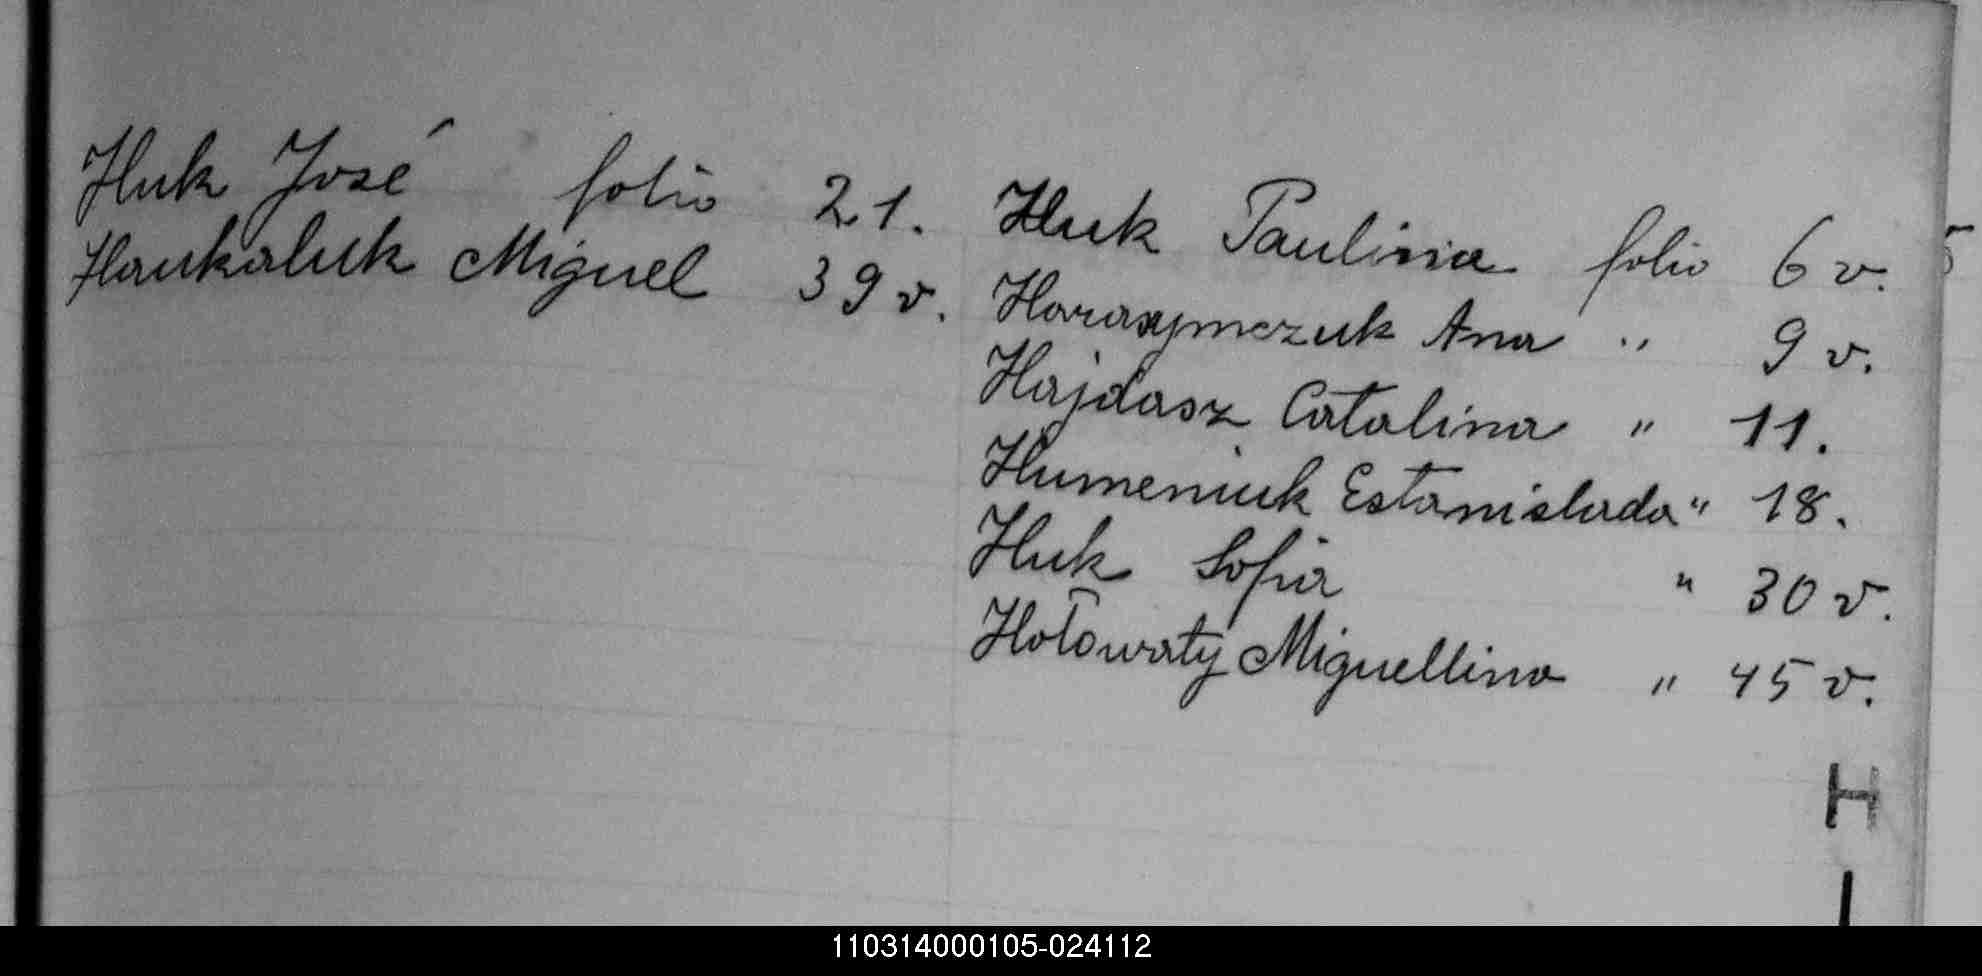 Huk José folio 21.
Haukaluk Miguel 39 v.
Huk Paulina folio 6 v.
Harasymczuk Ana " 9 v.
Hajdasz Catalina " 11.
Humeniuk Estanislada " 18.
Huk Sofia " 30 v.
Hołowaty Miguellina " 45 v.
H
I
110314000105-024112